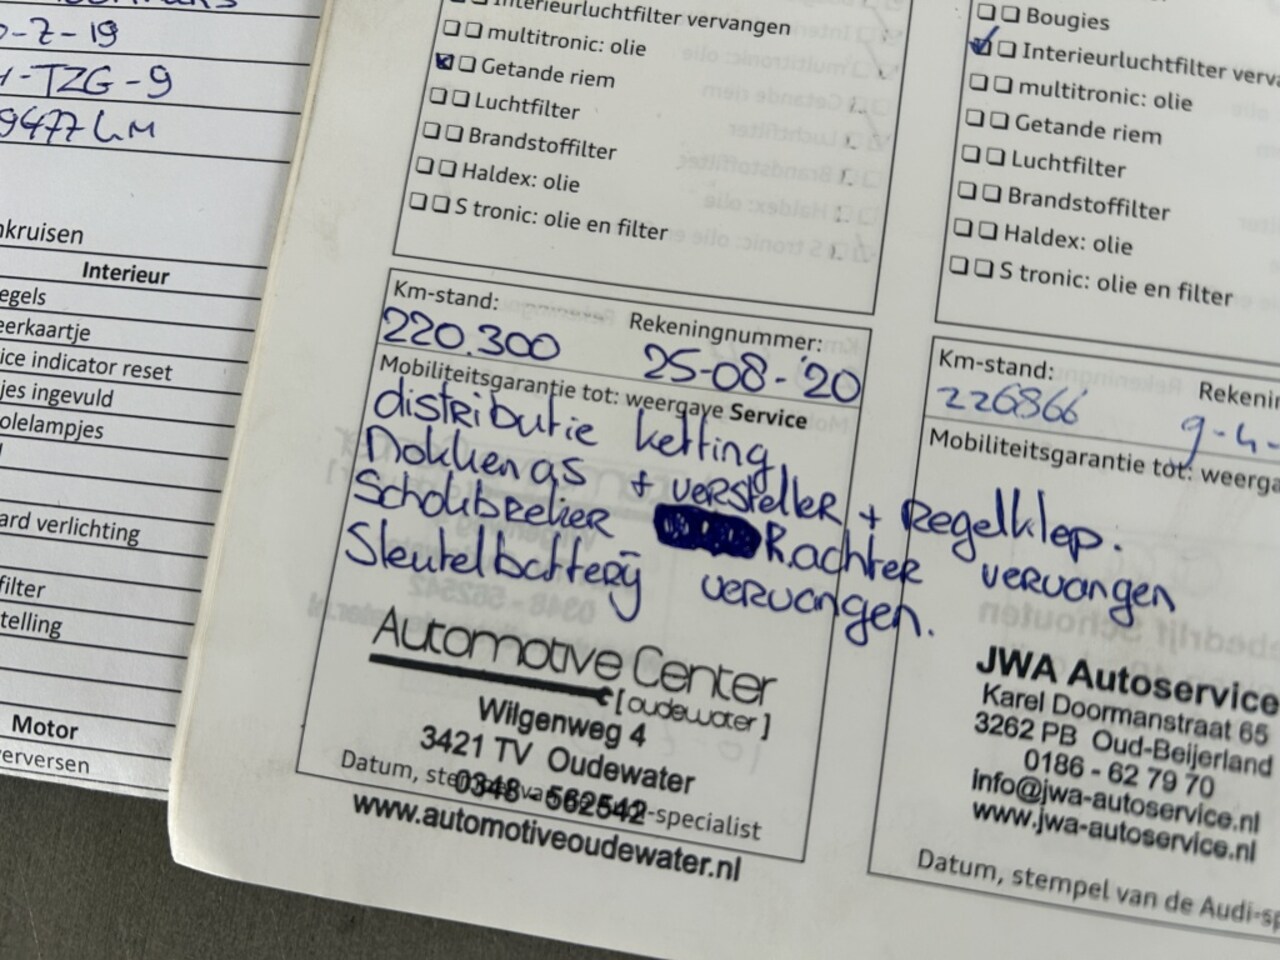 -7-19
-TZG-9
9477 km
nkruisen
Interieur
egels
eerkaartje
ice indicator reset
jes ingevuld
olelampjes
ard verlichting
filter
telling
Motor
verversen
Interieurluchtfilter vervangen
multitronic: olie
Getande riem
Luchtfilter
Brandstoffilter
Haldex: olie
S tronic: olie en filter
Km-stand:
Rekeningnummer:
220.300
25-08-'20
Mobiliteitsgarantie tot: weergave Service
distributie ketting
Nokkenas + versteller + Regelklep.
Schokbreker R.achter vervangen
Sleutelbatterij vervangen.
Automotive Center
[oudewater]
Wilgenweg 4
3421 TV Oudewater
0348 - 562542
Datum, ste -specialist
www.automotiveoudewater.nl
Bougies
Interieurluchtfilter verva
multitronic: olie
Getande riem
Luchtfilter
Brandstoffilter
Haldex: olie
S tronic: olie en filter
Km-stand:
Rekenin
226866
9-4-
Mobiliteitsgarantie tot: weerga
JWA Autoservice
Karel Doormanstraat 65
3262 PB Oud-Beijerland
0186 - 62 79 70
info@jwa-autoservice.nl
www.jwa-autoservice.nl
Datum, stempel van de Audi-sp